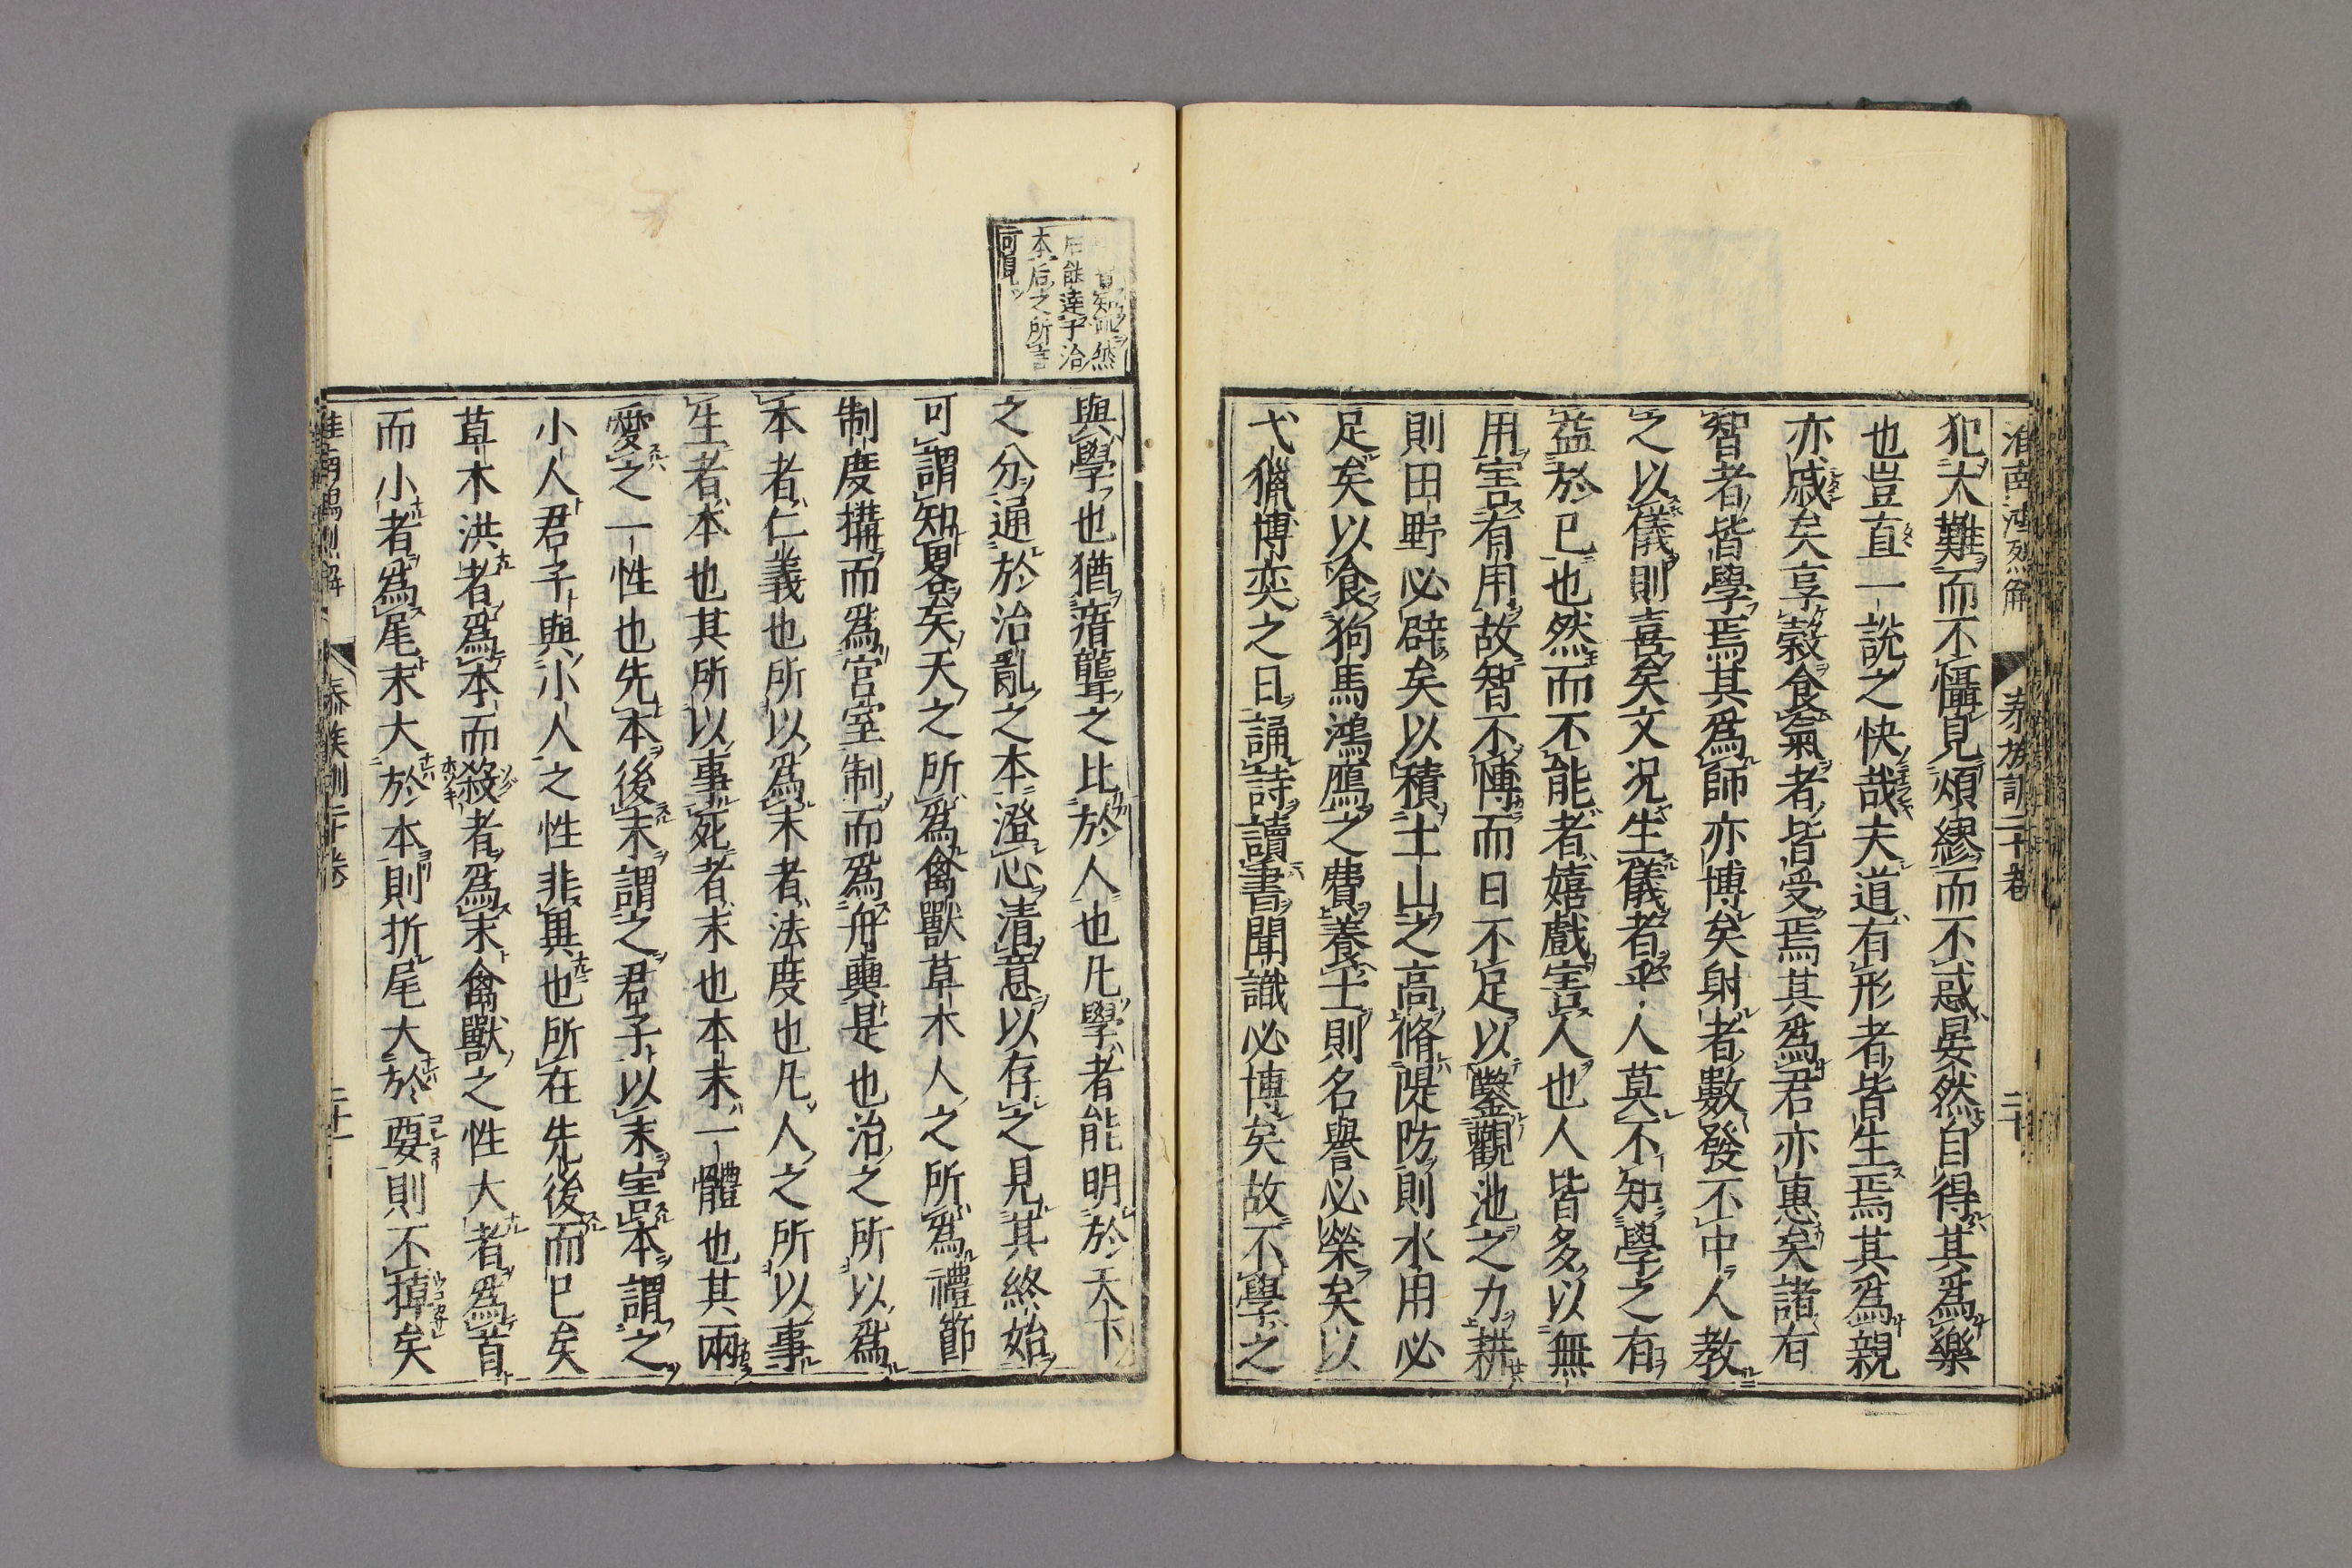 淮南鴻烈解 泰族訓二十卷 二十
犯大難而不懾見煩繆而不惑晏然自得其爲樂
也豈直一說之快哉夫道有形者皆生焉其爲親
亦戚矣享穀食氣者皆受焉其爲君亦惠矣諸有
智者皆學焉其爲師亦博矣射者數發不中人教
之以儀則喜矣又况生儀者乎人莫不知學之有
益於已也然而不能者嬉戲害人也人皆多以無
用害有用故智不博而日不足以鑿觀池之力耕
則田野必辟矣以積土山之高脩隄防則水用必
足矣以食狗馬鴻鴈之費養士則名譽必榮矣以
弋獵博奕之日誦詩讀書聞識必博矣故不學之
知 然
后能達于治
本后之所言
可見
與學也猶瘖聾之比於人也凡學者能明於天下
之分通於治亂之本澄心清意以存之見其終始
可謂知畧矣天之所爲禽獸草木人之所爲禮節
制度搆而爲宮室制而爲舟輿是也治之所以爲
本者仁義也所以爲末者法度也凡人之所以事
生者本也其所以事死者末也本末一體也其兩
愛之一性也先本後末謂之君子以末害本謂之
小人君子與小人之性非異也所在先後而已矣
草木洪者爲本而殺者爲末禽獸之性大者爲首
而小者爲尾末大於本則折尾大於要則不掉矣
淮南鴻烈解 泰族訓二十卷 二十一